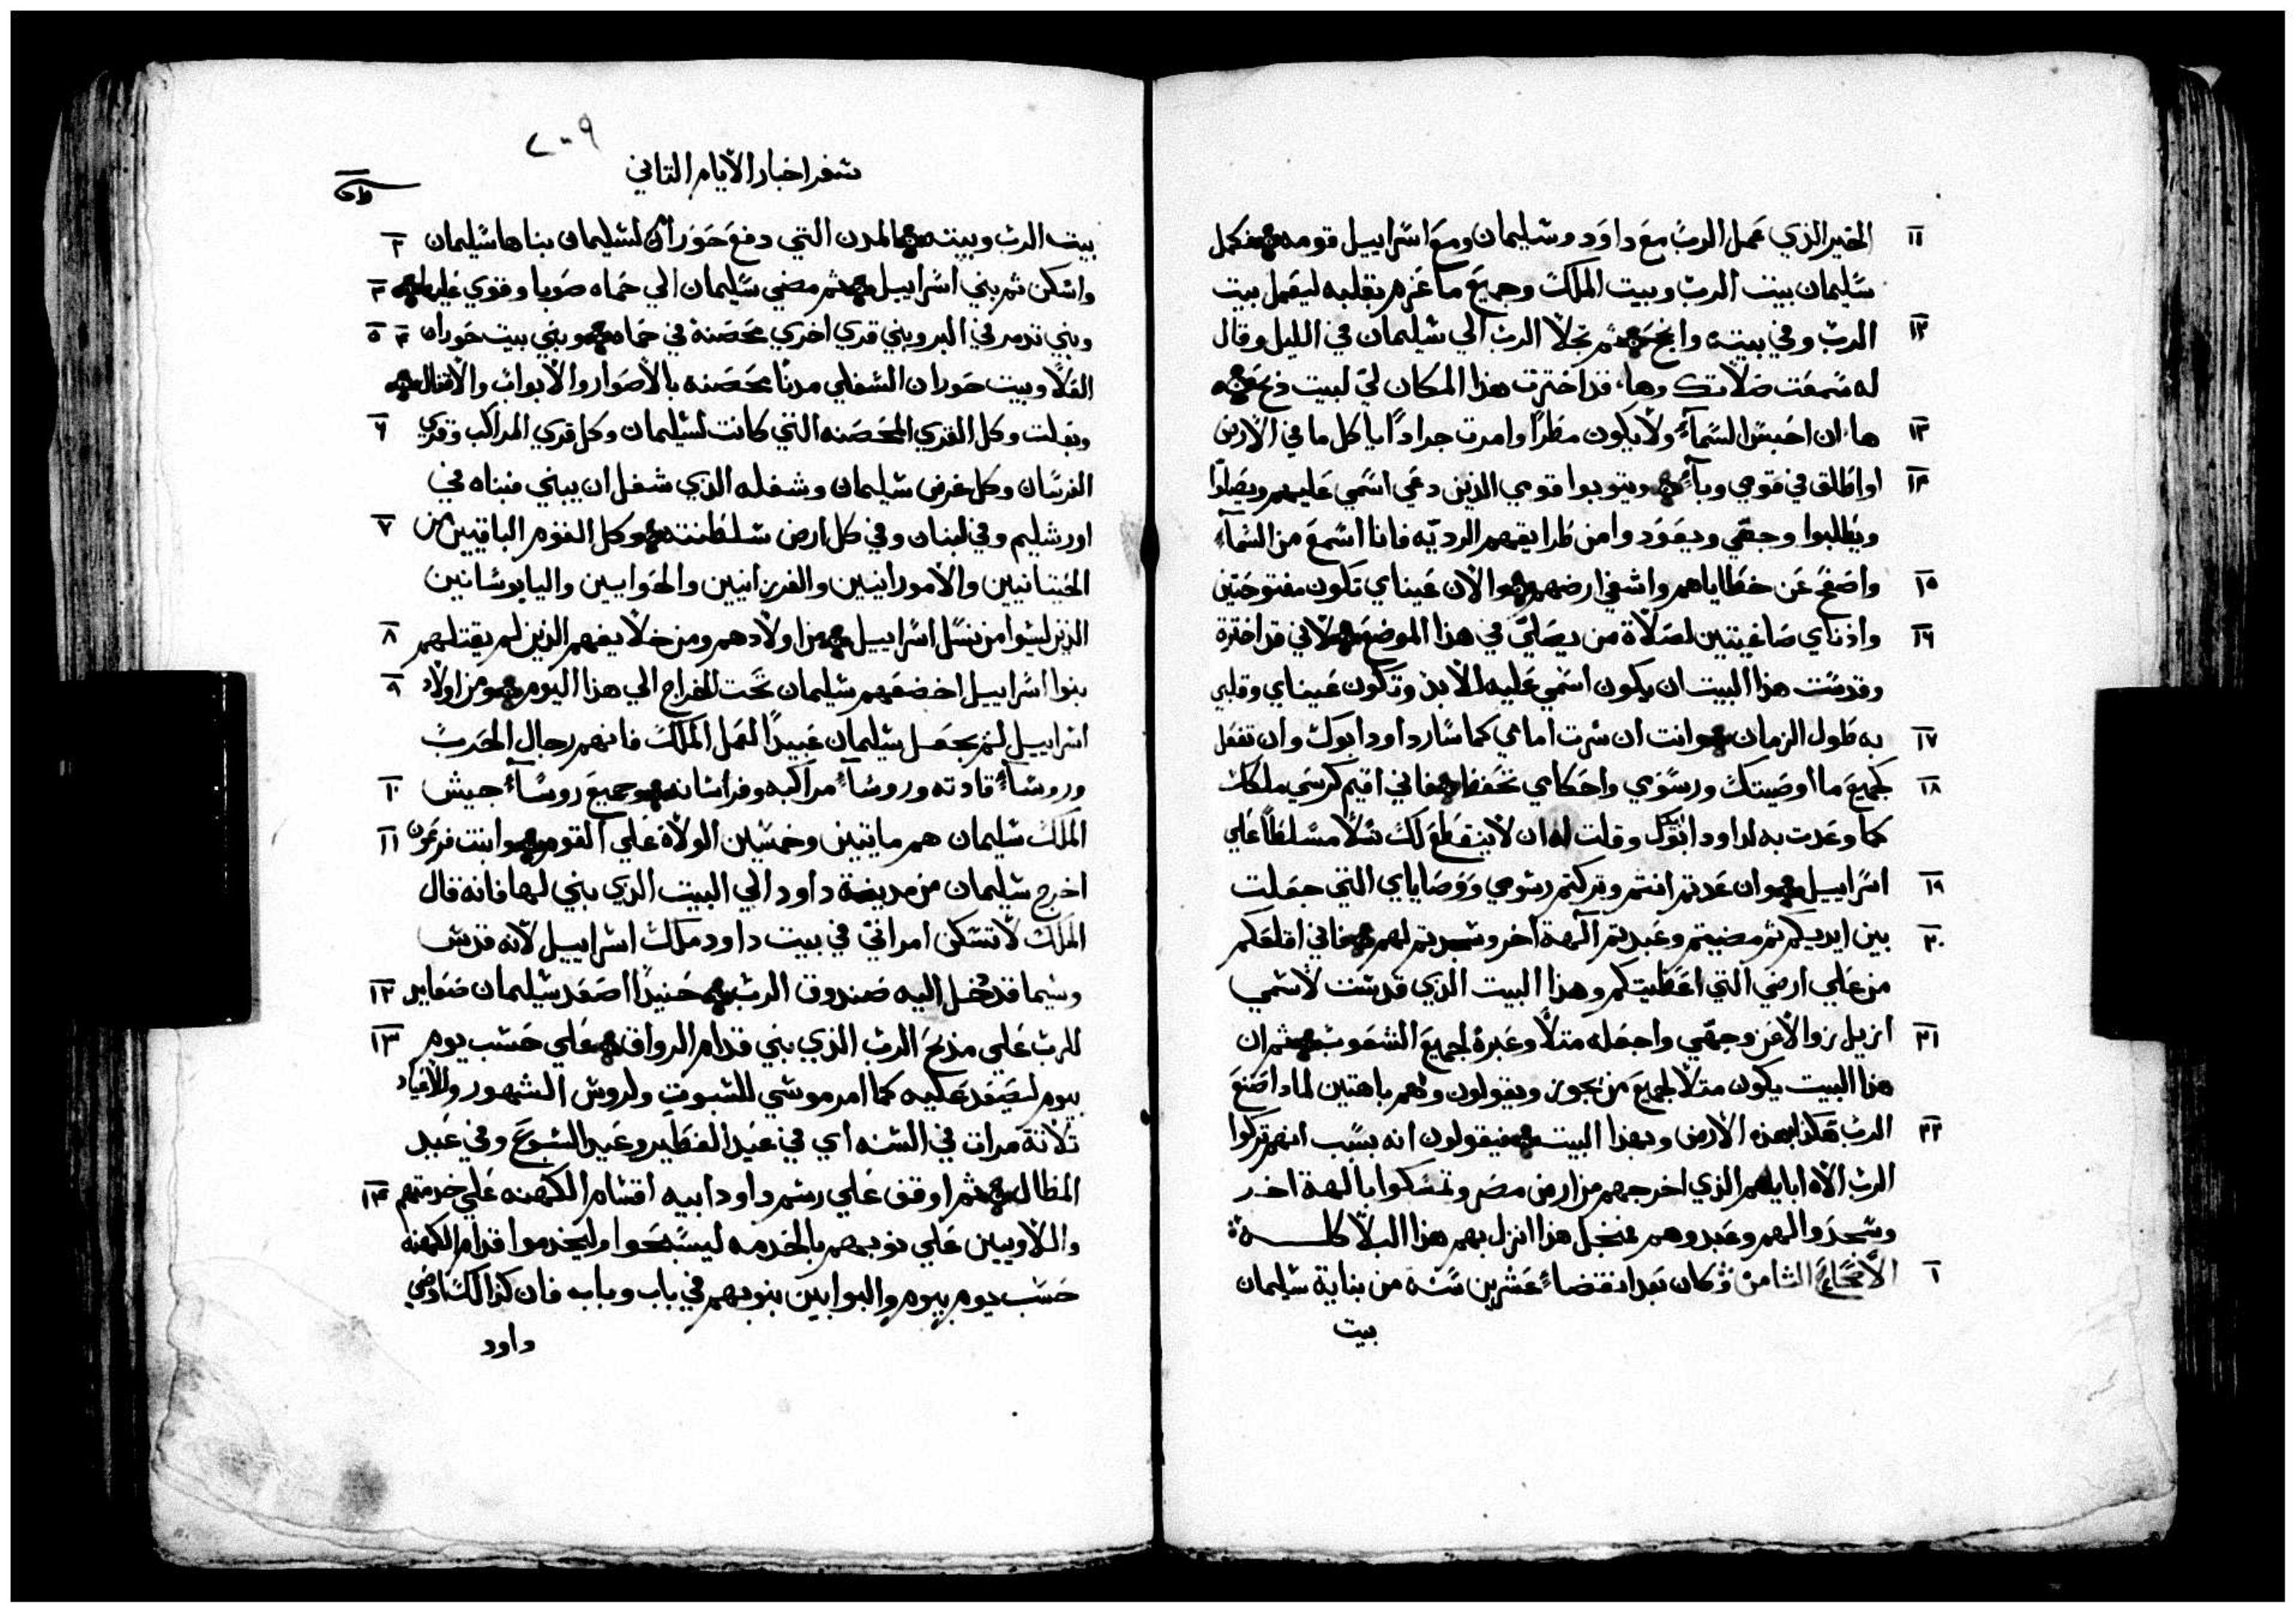 ١١ الخير الذي عمل الرب مع داود وسليمان ومع اسراييل قومه فكمل
سليمان بيت الرب وبيت الملك وجميع ما عزم بقلبه ليعمل بيت
١٢ الرب وفي بيته وانجح ثم تجلا الرب الي سليمان في الليل وقال
له سمعت صلاتك وها قد اخترت هذا المكان لي لبيت ذبح
١٣ ها ان احبس السمآء ولا يكون مطرًا وامرت جرادًا ياكل ما في الارض
١٤ او اطلق في قومي وبآء ويتوبوا قومي الذين دعي اسمي عليهم ويصلوا
ويطلبوا وجهي ويعود وامن طرايقهم الرديه فانا اسمع من السمآء
١٥ واصفح عن خطاياهم واشفي ارضهم والان عيناي تكون مفتوحتين
١٦ واذناي صاغيتين لصلاة من يصلي في هذا الموضع لاني قد اخترة
وقدست هذا البيت ان يكون اسمي عليه للابد وتكون عيناي وقلبي
١٧ به طول الزمان وانت ان سرت امامي كما سار داود ابوك وان تفعل
١٨ كجميع ما اوصيتك ورسومي واحكامي تحفظ فاني اقيم كرسي ملكك
كما وعدت به لداود ابوك وقلت له ان لا ينقطع لك نسلا مسلطًا علي
١٩ اسراييل وان عدتم انتم وتركتم رسومي ووصاياي التي جعلت
٢٠ بين ايديكم ثم مضيتم وعبدتم الهة اخر وسجدتم لهم فاني اقلعكم
من علي ارضي التي اعطيتكم وهذا البيت الذي قدست لاسمي
٢١ ازيل زوالا عن وجهي واجعله مثلًا وعبرة لجميع الشعوب ثم ان
هذا البيت يكون مثلا لجميع من يجوز ويقولون وهم باهتين لماذا صنع
٢٢ الرب هكذا بهذه الارض وبهذا البيت فيقولون انه بسبب انهم تركوا
الرب الاه اباييهم الذي اخرجهم من ارض مصر وتمسكوا بالهة اخر
وسجدوا لهم وعبدوهم فمنجل هذا انزل بهم هذا البلا كله
١ الاصحاح الثامن وكان بعد انقضاء عشرين سنه من بناية سليمان
بيت
٢٠٩
سفر اخبار الايام الثاني
٢ بيت الرب وبيته المدن التي دفع حوران لسليمان بناها سليمان
٣ واسكن ثم بني اسراييل ثم مضي سليمان الي حماه صوبا وقوي عليها
٤ ٥ وبني تدمر في البر وبني قري اخري محصنة في حماه وبني بيت حوران
العلا وبيت حوران السفلي مدنًا محصنه بالاصوار والابواب والاقفال
٦ وبعلت وكل القري المحصنه التي كانت لسليمان وكل قري المراكب وقري
الفرسان وكل غرض سليمان وشغله الذي شغل ان يبني فبناه في
٧ اورشليم وفي لبنان وفي كل ارض سلطنته وكل القوم الباقيين من
الحيتانيين والامورانيين والفرزانيين والحواييين واليابوسانيين
٨ الذين ليسوا من نسل اسراييل من اولادهم ومن خلايفهم الذين لم يقتلهم
٩ بنوا اسراييل اخضعهم سليمان تحت الخراج الي هذا اليوم ومن اولاد
اسراييل لم يجعل سليمان عبيدًا لعمل الملك فانهم رجال الحرب
١٠ وروسآء قادته وروسآء مراكبه وفرسانه وجميع روسآء جيش
١١ الملك سليمان هم مايتين وخمسين الولاة علي القوم وابنت فرعون
اخرج سليمان من مدينة داود الي البيت الذي بني لها فانه قال
الملك لا تسكن امراتي في بيت داود ملك اسراييل لانه قدس
١٢ وسيما قد دخل اليه صندوق الرب حنيذًا اصعد سليمان صعايد
١٣ للرب علي مذبح الرب الذي بني قدام الرواق علي حسب يوم
بيوم ليصعد عليه كما امر موسي للسبوت ولروس الشهور وللاعياد
ثلاثة مرات في السنه اي في عيد الفطير وعيد السبوع وفي عيد
١٤ المظال ثم اوقف علي رسم داود ابيه اقسام الكهنه علي خدمتهم
واللاويين علي نوبهم بالخدمه ليسبحوا وليخدموا قدام الكهنه
حسب يوم بيوم والبوابين بنوبهم في باب وباب فان كذالك اوصي
داود